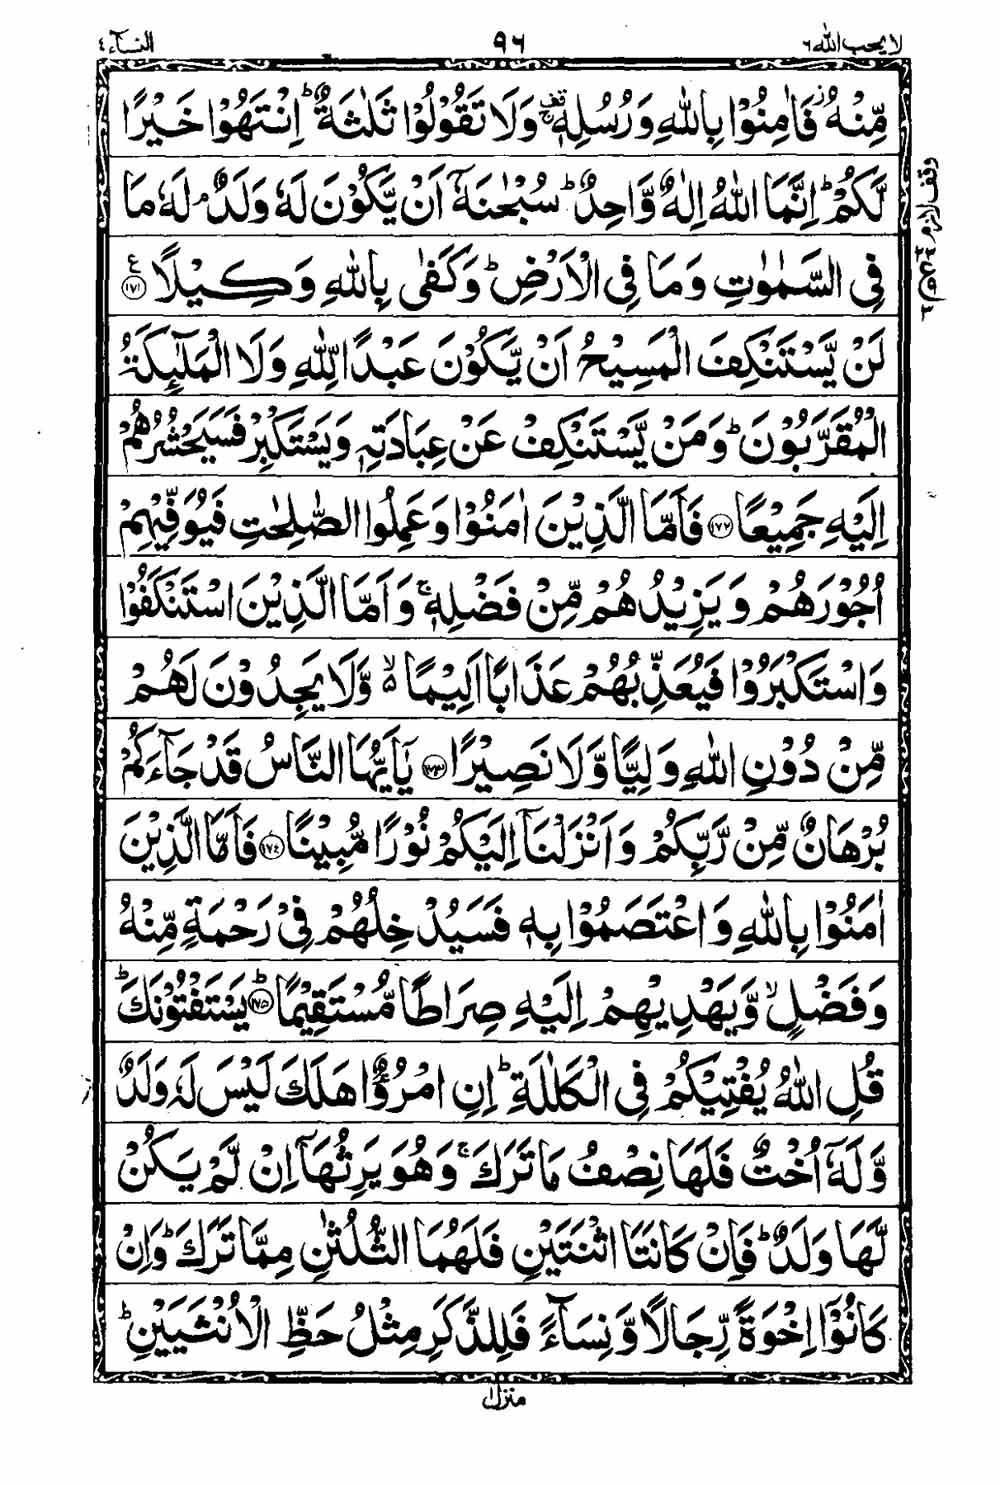 لا یحب الله ٦ ٩٦ النسآء ٤
مِّنْهُ ۫ فَاٰمِنُوْا بِاللّٰهِ وَرُسُلِهٖ ۚ۟ وَلَا تَقُوْلُوْا ثَلٰثَةٌ ؕ اِنْتَهُوْا خَيْرًا
لَّكُمْ ؕ اِنَّمَا اللّٰهُ اِلٰهٌ وَّاحِدٌ ؕ سُبْحٰنَهٗۤ اَنْ يَّكُوْنَ لَهٗ وَلَدٌ ۘ لَهٗ مَا
فِى السَّمٰوٰتِ وَمَا فِى الْاَرْضِ ؕ وَكَفٰى بِاللّٰهِ وَكِيْلًا ﴿۱۷۱﴾ ع
لَنْ يَّسْتَنْكِفَ الْمَسِيْحُ اَنْ يَّكُوْنَ عَبْدًا لِّلّٰهِ وَلَا الْمَلٰٓئِكَةُ
الْمُقَرَّبُوْنَ ؕ وَمَنْ يَّسْتَنْكِفْ عَنْ عِبَادَتِهٖ وَيَسْتَكْبِرْ فَسَيَحْشُرُهُمْ
اِلَيْهِ جَمِيْعًا ﴿۱۷۲﴾ فَاَمَّا الَّذِيْنَ اٰمَنُوْا وَعَمِلُوا الصّٰلِحٰتِ فَيُوَفِّيْهِمْ
اُجُوْرَهُمْ وَيَزِيْدُهُمْ مِّنْ فَضْلِهٖ ۚ وَاَمَّا الَّذِيْنَ اسْتَنْكَفُوْا
وَاسْتَكْبَرُوْا فَيُعَذِّبُهُمْ عَذَابًا اَلِيْمًا ۙ۬ وَّلَا يَجِدُوْنَ لَهُمْ
مِّنْ دُوْنِ اللّٰهِ وَلِيًّا وَّلَا نَصِيْرًا ﴿۱۷۳﴾ يٰۤاَيُّهَا النَّاسُ قَدْ جَآءَكُمْ
بُرْهَانٌ مِّنْ رَّبِّكُمْ وَاَنْزَلْنَاۤ اِلَيْكُمْ نُوْرًا مُّبِيْنًا ﴿۱۷٤﴾ فَاَمَّا الَّذِيْنَ
اٰمَنُوْا بِاللّٰهِ وَاعْتَصَمُوْا بِهٖ فَسَيُدْخِلُهُمْ فِيْ رَحْمَةٍ مِّنْهُ
وَفَضْلٍ ۙ وَّيَهْدِيْهِمْ اِلَيْهِ صِرَاطًا مُّسْتَقِيْمًا ﴿۱۷۵﴾ ؕ يَسْتَفْتُوْنَكَ ؕ
قُلِ اللّٰهُ يُفْتِيْكُمْ فِى الْكَلٰلَةِ ؕ اِنِ امْرُؤٌا هَلَكَ لَيْسَ لَهٗ وَلَدٌ
وَّلَهٗۤ اُخْتٌ فَلَهَا نِصْفُ مَا تَرَكَ ۚ وَهُوَ يَرِثُهَاۤ اِنْ لَّمْ يَكُنْ
لَّهَا وَلَدٌ ؕ فَاِنْ كَانَتَا اثْنَتَيْنِ فَلَهُمَا الثُّلُثٰنِ مِمَّا تَرَكَ ؕ وَاِنْ
كَانُوْۤا اِخْوَةً رِّجَالًا وَّنِسَآءً فَلِلذَّكَرِ مِثْلُ حَظِّ الْاُنْثَيَيْنِ ؕ
وقف لازم
منزل ١